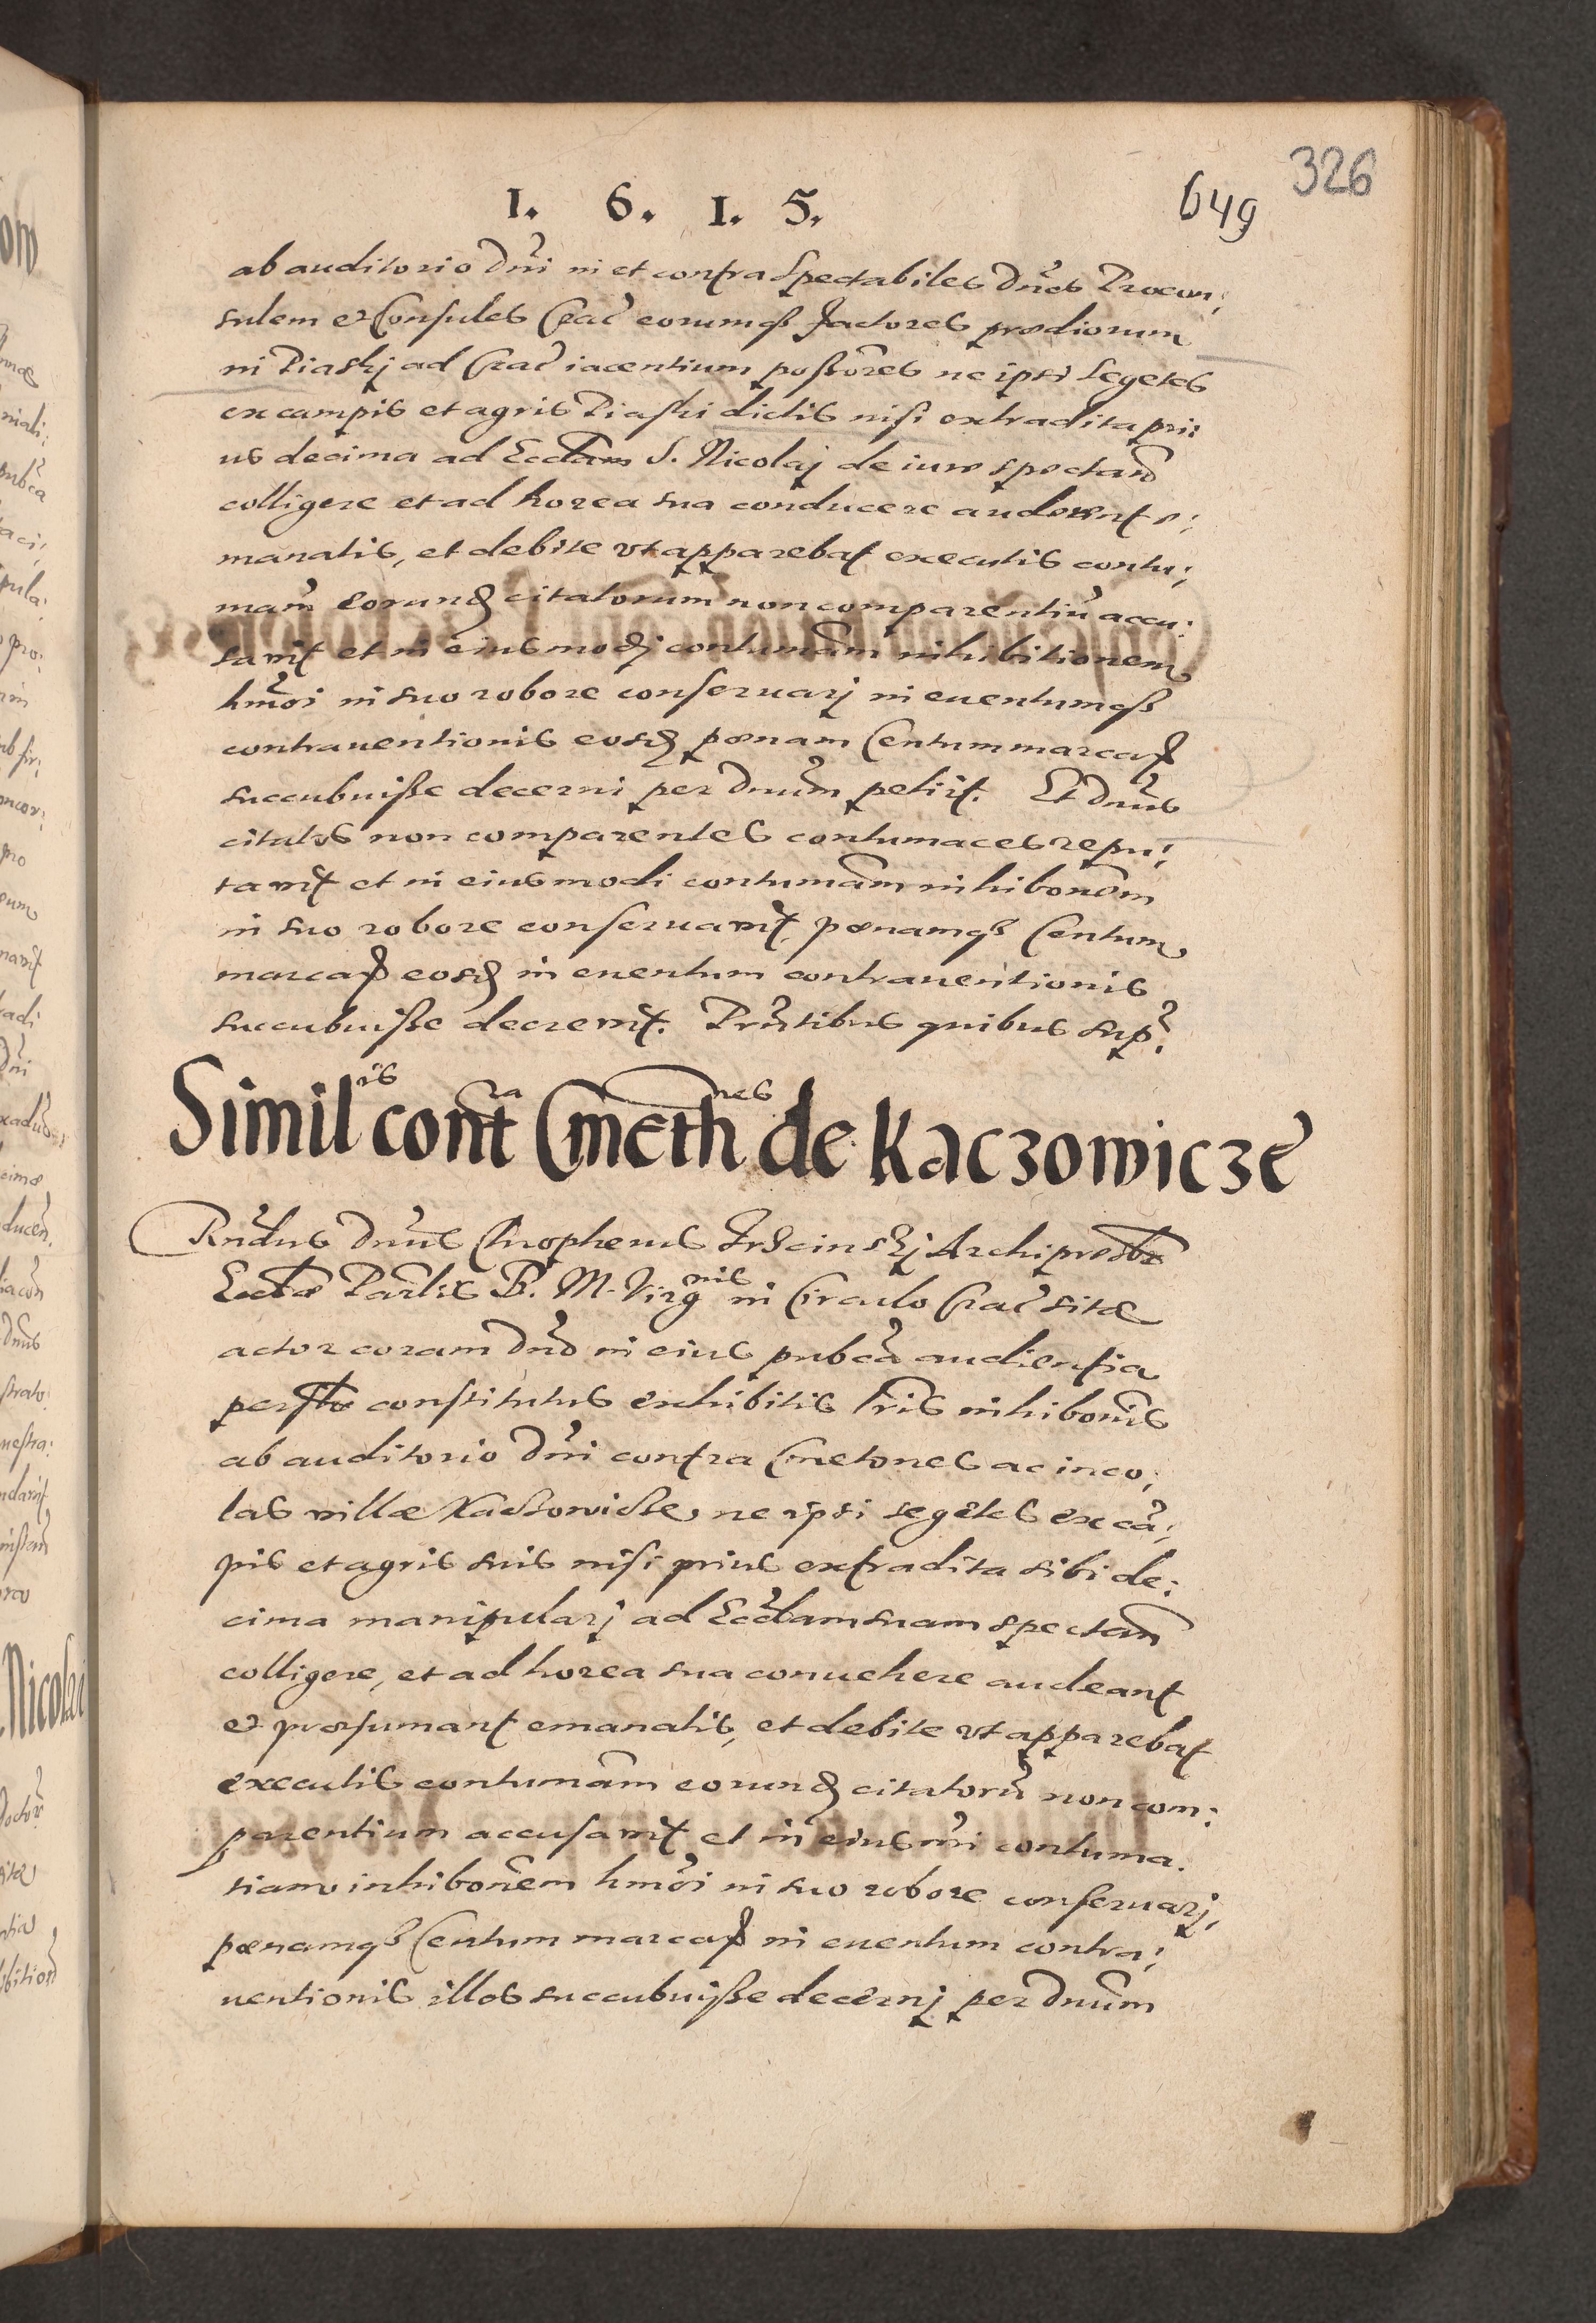 326
1. 6. 1. 5.
649
ab auditorio Dni in et contra Spectabiles Dnos Procon:
sulem et Consules Crac eorumqз factores praediorum
in Piaskj ad Crac iacentium possores ne ipsi segetes
ex campis et agris Piaski dictis nisi extradita pri:
us decima ad Ecclam S. Nicolaj de iure spectan
colligere et ad horea sua conducere auderent e:
manatis, et debite ut apparebat executis contu:
mam eorund citatorum non comparentiu accu:
savit et in eiusmodj contumam inhibitionem
hmoi in suo robore conseruarj in euentumqз
contrauentionis eosd poenam Centum marcar
succubuisse decerni per Dnum petiit. Et Dnus
citatos non comparentes contumaces repu:
tavit et in eiusmodi contumam inhibonem
in suo robore conseruavit, poenamqз Centum
marcar eosd in euentum contrauentionis
succubuisse decrevit. Pntibus quibus sup.
Similis contra Cmethnes de Kaczowicze
Rndus Dnus Chrophorus Trzcinskj Archipresbr
Eccae Parlis B. M. Virgnis in Circulo Crac sitae
actor coram Dno in eius pubca audientia
perslr constitutus exhibitis lris inhibonis
ab auditorio Dni contra Cmetones ac inco:
las villae Kaczowicze ne ipsi segetes ex ca:
pis et agris suis nisi prius extradita sibi de:
cima manipularj ad Ecclam suam spectan
colligere, et ad horea sua conuehere audeant
et praesumant emanatis, et debite ut apparebat
executis contumam eorund citatoru non com:
parentium accusavit et in eiusmi contuma.
tiam inhibonem hmoi in suo robore conseruarj,
poenamqз Centum marcar in euentum contra:
uentionis illos succubuisse decernj per Dnum